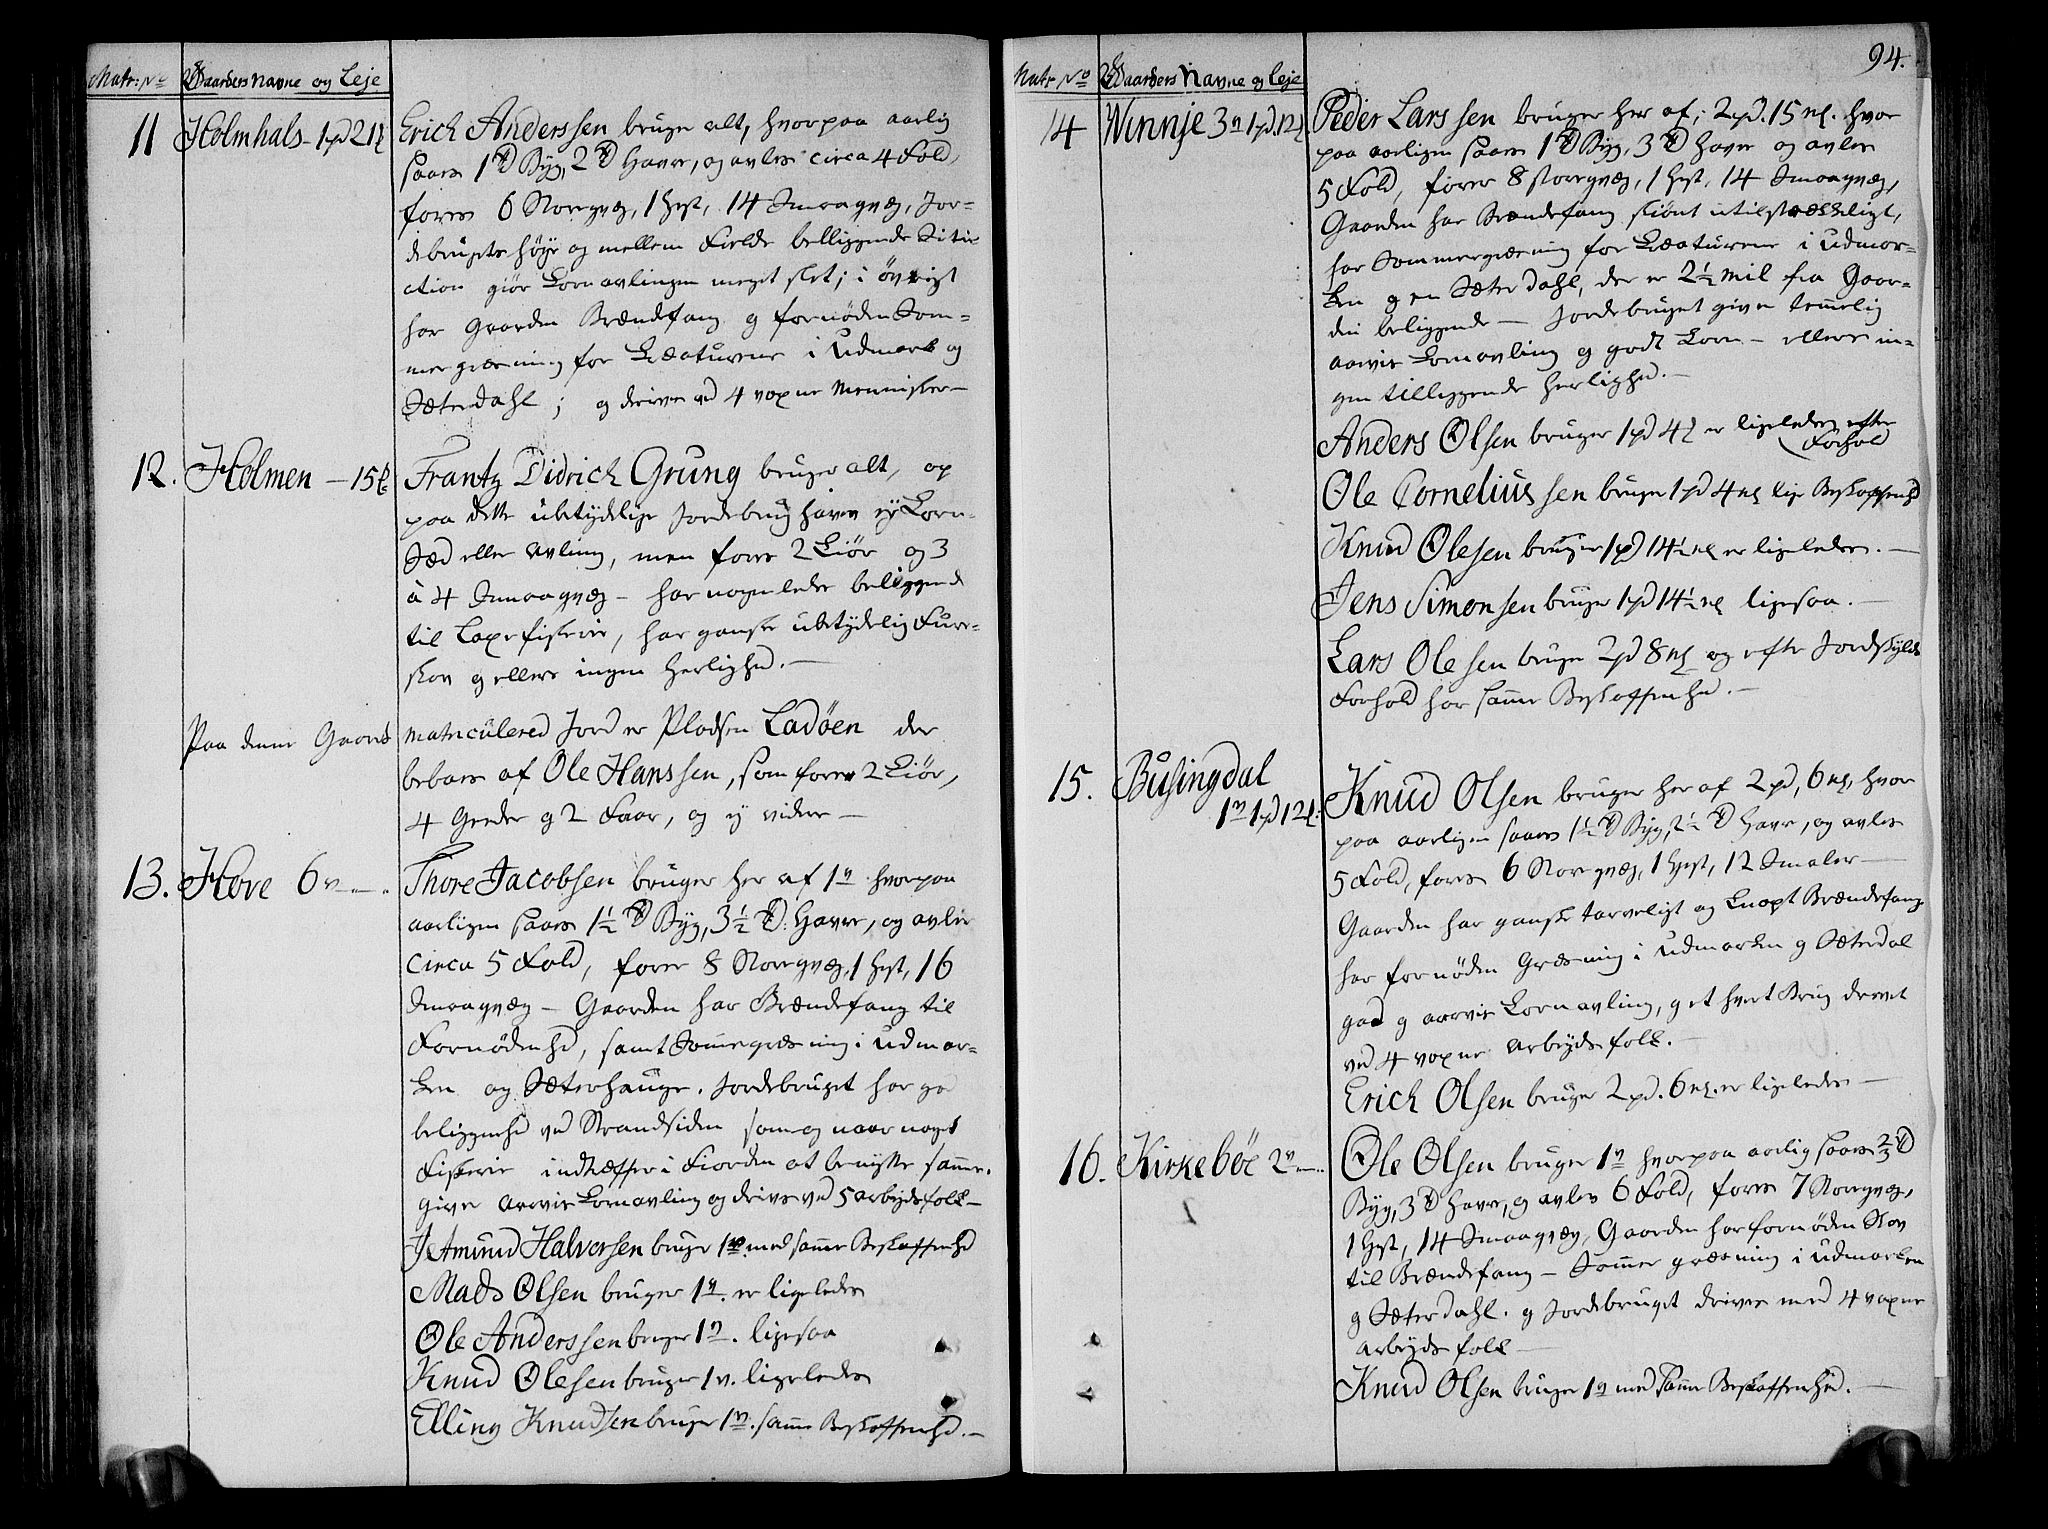 Matr: No Gaardes Navne og Leje
11 Holmhals - 1pd 21 Erich Anderssen bruger alt, hvorpaa aarlig
saaes 1 Td Byg, 2 Td Havre, og avles circa 4 Fold,
fores 6 Storqvæg, 1 Hest, 14 Smaaqvæg, Jor-
debrugets høye og mellem Fielde belliggende Situ-
ation giør Kornavlingen meget slet; i øvrigt
har Gaarden Brændefang og fornøden Som-
mer græsning for Kreaturene i Udmark og
Sæterdahl; og drives ved 4 voxne Mennisker -
12. Holmen - 15 Frantz Didrich Grung bruger alt, og
paa dette ubetydelige Jordebrug haves ey Korn-
Sæd eller Avling, men fores 2 Kiør og 3
à 4 Smaaqvæg - har nogenledes beliggende
til Laxefiskerie, har ganske ubetydelig Furre-
skov og ellers ingen Herlighed. -
Paa denne Gaards matriculered Jord er Pladsen Ladøen der
beboes af Ole Hanssen, som forer 2 Kiør,
4 Geeder og 2 Faar, og ej videre -
13. Hove 6 v Thore Jacobsen bruger her af 1 v hvorpaa
aarligen saaes 1 1/2 Td Byg, 3 1/2 Td: Havre, og avles
circa 5 Fold, forer 8 Storqvæg, 1 Hest, 16
Smaaqvæg - Gaarden har Brændefang til
Fornødenhed, samt Sommergræsning i Udmar-
ken og Sæterhauge. Jordebruget har god
beliggenhed ved Strandsiden som og naar noget
Fiskerie indtræffer i Fiorden at benytte samme.
giver aarvis Kornavling og drives ved 5 arbeydsfolk -
Amund Halversen bruger 1 v. med samme Beskaffenhed
Mads Olsen bruger 1 v. er ligeledes
Ole Anderssen bruger 1 v. ligesaa
Knud Olesen bruger 1 v. ligeledes
Elling Knudsen bruger 1 v. samme Beskaffenhed. -
94.
Matr No Gaardes Navne og Leje
14 Winnje 3 v 1 pd. 12 Peder Larssen bruger her af; 2 pd. 15 mk. hvor
paa aarligen saaes 1 Td Byg, 3 Td Havre og avles
5 Fold, forer 8 storqvæg, 1 Hest, 14 Smaaqvæg,
Gaarden har Brændefang skiønt utilstrækkeligt,
har Sommergræsning for Kreaturene i Udmar-
ken og en Sæterdahl, der er 2 1/2 Mil fra Gaar-
den beliggende - Jordebruget giver temmelig
aarvis Kornavling og godt Korn - ellers in-
gen tilliggende Herlighed. -
Anders Olsen bruger 1 pd 4 er ligeledes efter
Forhold
Ole Corneliussen bruger 1 pd 4 mk lige Beskaffenhed
Knud Olesen bruger 1 pd 14 1/2 mk er ligeledes. -
Jens Simonsen bruger 1 pd 14 1/2 mk ligesaa. -
Lars Olesen bruger 2 pd 8 mk og efter Jordskylds
Forhold har samme Beskaffenhed. -
15. Busingdal Knud Olsen bruger her af 2 pd, 6 mk, hvor
1 v 1 pd 12 paa aarligen saaes 1 1/2 Td Byg, 2 1/2 Td Havre, og avles
5 Fold, fores 6 Storqvæg, 1 Hest, 12 Smaler -
Gaarden har ganske tarveligt og knapt Brændefang
har fornøden Græsning i Udmarken og Sæterdal
god og aarvis Kornavling, og et hvert Brug drevet
ved 4 voxne Arbeydsfolk. -
Erich Olsen bruger 2 pd. 6 mk. er ligeledes -
16. Kirkebøe 2 v Ole Olsen bruger 1 v hvorpaa aarlig saaes 2/3 Td
Byg, 3 Td Havre, og avles 6 Fold, forer 7 Storqvæg,
1 Hest, 14 Smaaqvæg, Gaarden har fornøden Skov
til Brændefang - Sommer græsning i Udmarken
og Sæterdahl. og Jordebruget drives med 4 voxne
Arbeyds folk -
Knud Olsen bruger 1 v med samme Beskaffenhed. -